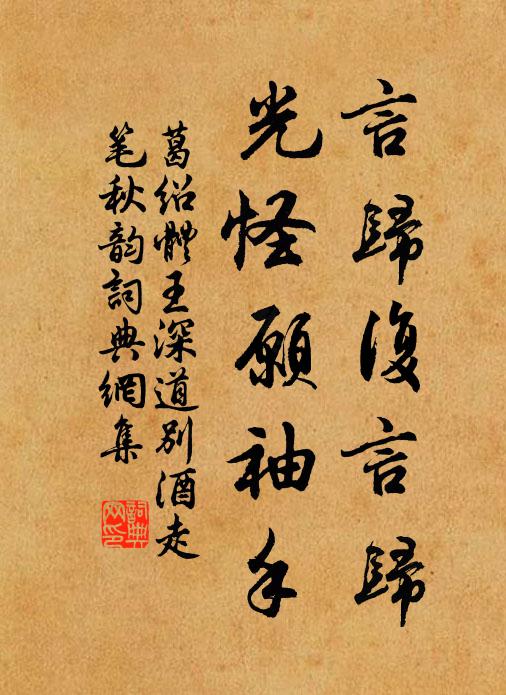 言歸復言歸
光怪願袖手
葛绍體王深道别酒走
笔秋韵詞典網集
詞典网印